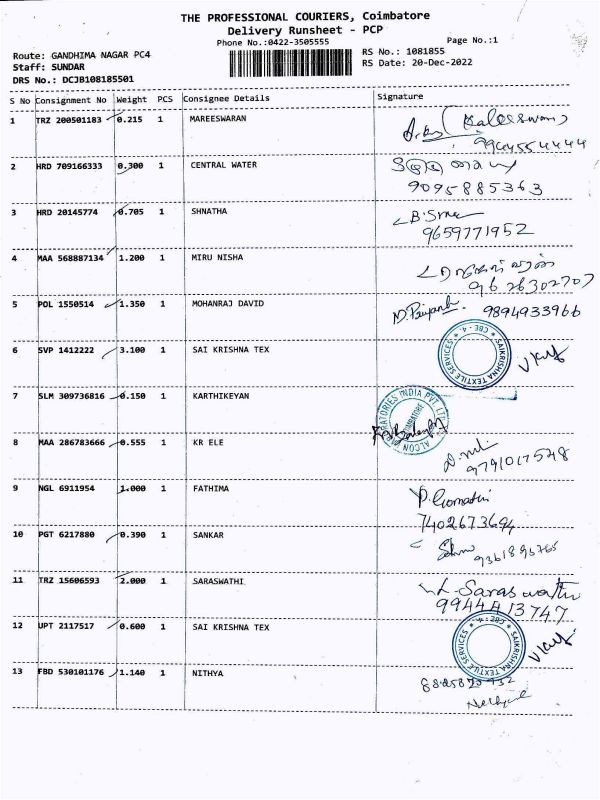 THE PROFESSIONAL COURIERS, Coimbatore
Delivery Runsheet - PCP
Phone No.:0422-3505555
Page No.:1
Route: GANDHIMA NAGAR PC4
RS No.: 1081855
Staff: SUNDAR
RS Date: 20-Dec-2022
DRS No.: DCJB108185501
S No Consignment No Weight PCS Consignee Details Signature
1 TRZ 200501183 0.215 1 MAREESWARAN
9944554444
2 HRD 709166333 0.300 1 CENTRAL WATER
9095885363
3 HRD 20145774 0.705 1 SHNATHA
9659771952
4 MAA 568887134 1.200 1 MIRU NISHA
9626302707
5 POL 1550514 1.350 1 MOHANRAJ DAVID 9894933966
6 SVP 1412222 3.100 1 SAI KRISHNA TEX SAIKRISHNA TEXTILE SERVICES CBE - 4.
7 SLM 309736816 0.150 1 KARTHIKEYAN
8 MAA 286783666 0.555 1 KR ELE
9791017528
9 NGL 6911954 1.000 1 FATHIMA P. Gomathi
7402673694
10 PGT 6217880 0.390 1 SANKAR 9361895765
11 TRZ 15606593 2.000 1 SARASWATHI L. Saraswathi
9944413747
12 UPT 2117517 0.600 1 SAI KRISHNA TEX SAIKRISHNA TEXTILE SERVICES CBE - 4.
13 FBD 530101176 1.140 1 NITHYA